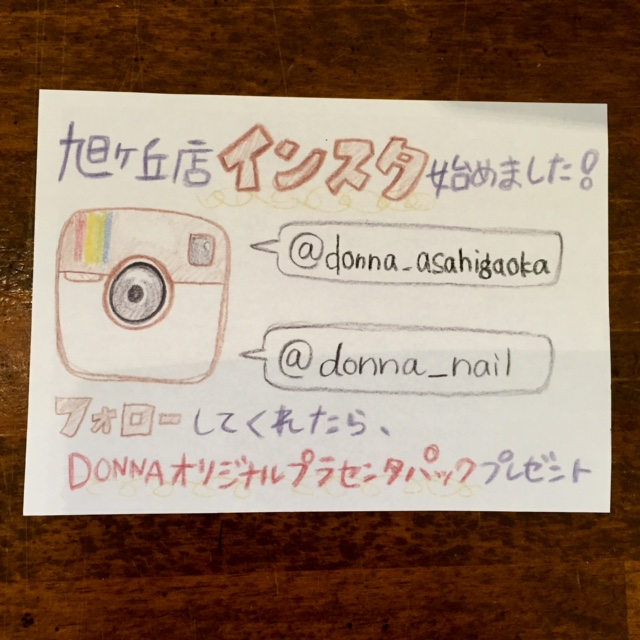 旭ヶ丘店インスタ始めました!
@donna_asahigaoka
@donna_nail
フォローしてくれたら、
DONNAオリジナルプラセンタパックプレゼント